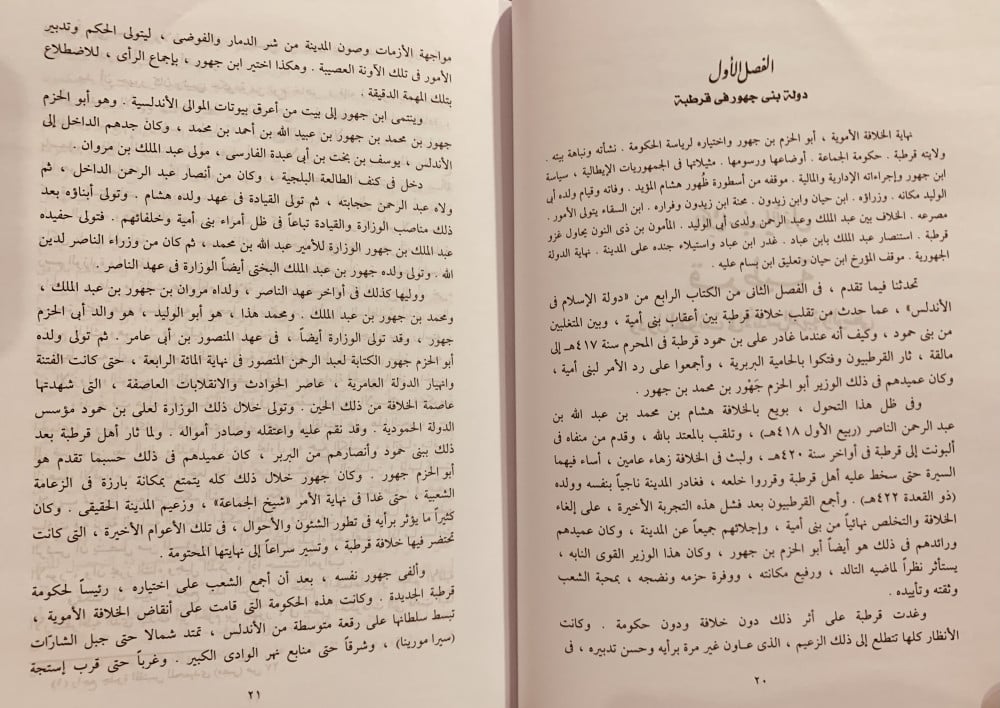 الفصل الأول
دولة بنى جهور فى قرطبة
نهاية الخلافة الأموية . أبو الحزم بن جهور واختياره لرياسة الحكومة . نشأته ونباهة بيته .
ولايته قرطبة . حكومة الجماعة . أوضاعها ورسومها . مثيلاتها فى الجمهوريات الإيطالية . سياسة
ابن جهور وإجراءاته الإدارية والمالية . موقفه من أسطورة ظهور هشام المؤيد . وفاته وقيام ولده أبى
الوليد مكانه . وزراؤه . ابن حيان وابن زيدون . محنة ابن زيدون وفراره . ابن السقاء يتولى الأمور .
مصرعه . الخلاف بين عبد الملك وعبد الرحمن ولدى أبى الوليد . المأمون بن ذى النون يحاول غزو
قرطبة . استنصار عبد الملك بابن عباد . غدر ابن عباد واستيلاء جنده على المدينة . نهاية الدولة
الجهورية . موقف المؤرخ ابن حيان وتعليق ابن بسام عليه .
تحدثنا فيما تقدم ، فى الفصل الثانى من الكتاب الرابع من «دولة الإسلام فى
الأندلس» ، عما حدث من تقلب خلافة قرطبة بين أعقاب بنى أمية ، وبين المتغلبين
من بنى حمود ، وكيف أنه عندما غادر على بن حمود قرطبة فى المحرم سنة ٤١٧هـ إلى
مالقة ، ثار القرطبيون وفتكوا بالحامية البربرية ، وأجمعوا على رد الأمر لبنى أمية ،
وكان عميدهم فى ذلك الوزير أبو الحزم جَهْور بن محمد بن جهور .
وفى ظل هذا التحول ، بويع بالخلافة هشام بن محمد بن عبد الله بن
عبد الرحمن الناصر (ربيع الأول ٤١٨هـ) ، وتلقب بالمعتد بالله ، وقدم من منفاه فى
ألبونت إلى قرطبة فى أواخر سنة ٤٢٠هـ ، ولبث فى الخلافة زهاء عامين ، أساء فيهما
السيرة حتى سخط عليه أهل قرطبة وقرروا خلعه ، فغادر المدينة ناجياً بنفسه وولده
(ذو القعدة ٤٢٢هـ) . وأجمع القرطبيون بعد فشل هذه التجربة الأخيرة ، على إلغاء
الخلافة والتخلص نهائياً من بنى أمية ، وإجلائهم جميعاً عن المدينة ، وكان عميدهم
ورائدهم فى ذلك هو أيضاً أبو الحزم بن جهور ، وكان هذا الوزير القوى النابه ،
يستأثر نظراً لماضيه التالد ، ورفيع مكانته ، ووفرة حزمه ونضجه ، بمحبة الشعب
وثقته وتأييده .
وغدت قرطبة على أثر ذلك دون خلافة ودون حكومة . وكانت
الأنظار كلها تتطلع إلى ذلك الزعيم ، الذى عاون غير مرة برأيه وحسن تدبيره ، فى
٢٠
مواجهة الأزمات وصون المدينة من شر الدمار والفوضى ، ليتولى الحكم وتدبير
الأمور فى تلك الآونة العصيبة . وهكذا اختير ابن جهور ، بإجماع الرأى ، للاضطلاع
بتلك المهمة الدقيقة .
وينتمى ابن جهور إلى بيت من أعرق بيوتات الموالى الأندلسية . وهو أبو الحزم
جهور بن محمد بن جهور بن عبيد الله بن أحمد بن محمد ، وكان جدهم الداخل إلى
الأندلس ، يوسف بن بخت بن أبى عبدة الفارسى ، مولى عبد الملك بن مروان .
دخل فى كنف الطالعة البلجية ، وكان من أنصار عبد الرحمن الداخل ، ثم
ولاه عبد الرحمن حجابته ، ثم تولى القيادة فى عهد ولده هشام . وتولى أبناؤه بعد
ذلك مناصب الوزارة والقيادة تباعاً فى ظل أمراء بنى أمية وخلفائهم . فتولى حفيده
عبد الملك بن جهور الوزارة للأمير عبد الله بن محمد ، ثم كان من وزراء الناصر لدين
الله . وتولى ولده جهور بن عبد الملك البختى أيضاً الوزارة فى عهد الناصر .
ووليها كذلك فى أواخر عهد الناصر ، ولداه مروان بن جهور بن عبد الملك ،
ومحمد بن جهور بن عبد الملك . ومحمد هذا ، هو أبو الوليد ، هو والد أبى الحزم
جهور ، وقد تولى الوزارة أيضاً ، فى عهد المنصور بن أبى عامر . ثم تولى ولده
أبو الحزم جهور الكتابة لعبد الرحمن المنصور فى نهاية المائة الرابعة ، حتى كانت الفتنة
وانهيار الدولة العامرية ، عاصر الحوادث والانقلابات العاصفة ، التى شهدتها
عاصمة الخلافة من ذلك الحين . وتولى خلال ذلك الوزارة لعلى بن حمود مؤسس
الدولة الحمودية . وقد نقم عليه واعتقله وصادر أمواله . ولما ثار أهل قرطبة بعد
ذلك ببنى حمود وأنصارهم من البربر ، كان عميدهم فى ذلك حسبما تقدم هو
أبو الحزم جهور . وكان جهور خلال ذلك كله يتمتع بمكانة بارزة فى الزعامة
الشعبية ، حتى غدا فى نهاية الأمر «شيخ الجماعة» ، وزعيم المدينة الحقيقى . وكان
كثيراً ما يؤثر برأيه فى تطور الشئون والأحوال ، فى تلك الأعوام الأخيرة ، التى كانت
تحتضر فيها خلافة قرطبة ، وتسير سراعاً إلى نهايتها المحتومة .
وألفى جهور نفسه ، بعد أن أجمع الشعب على اختياره ، رئيساً لحكومة
قرطبة الجديدة . وكانت هذه الحكومة التى قامت على أنقاض الخلافة الأموية ،
تبسط سلطانها على رقعة متوسطة من الأندلس ، تمتد شمالا حتى جبل الشارّات
(سيرا مورينا) ، وشرقاً حتى منابع نهر الوادى الكبير . وغرباً حتى قرب إستجة
٢١